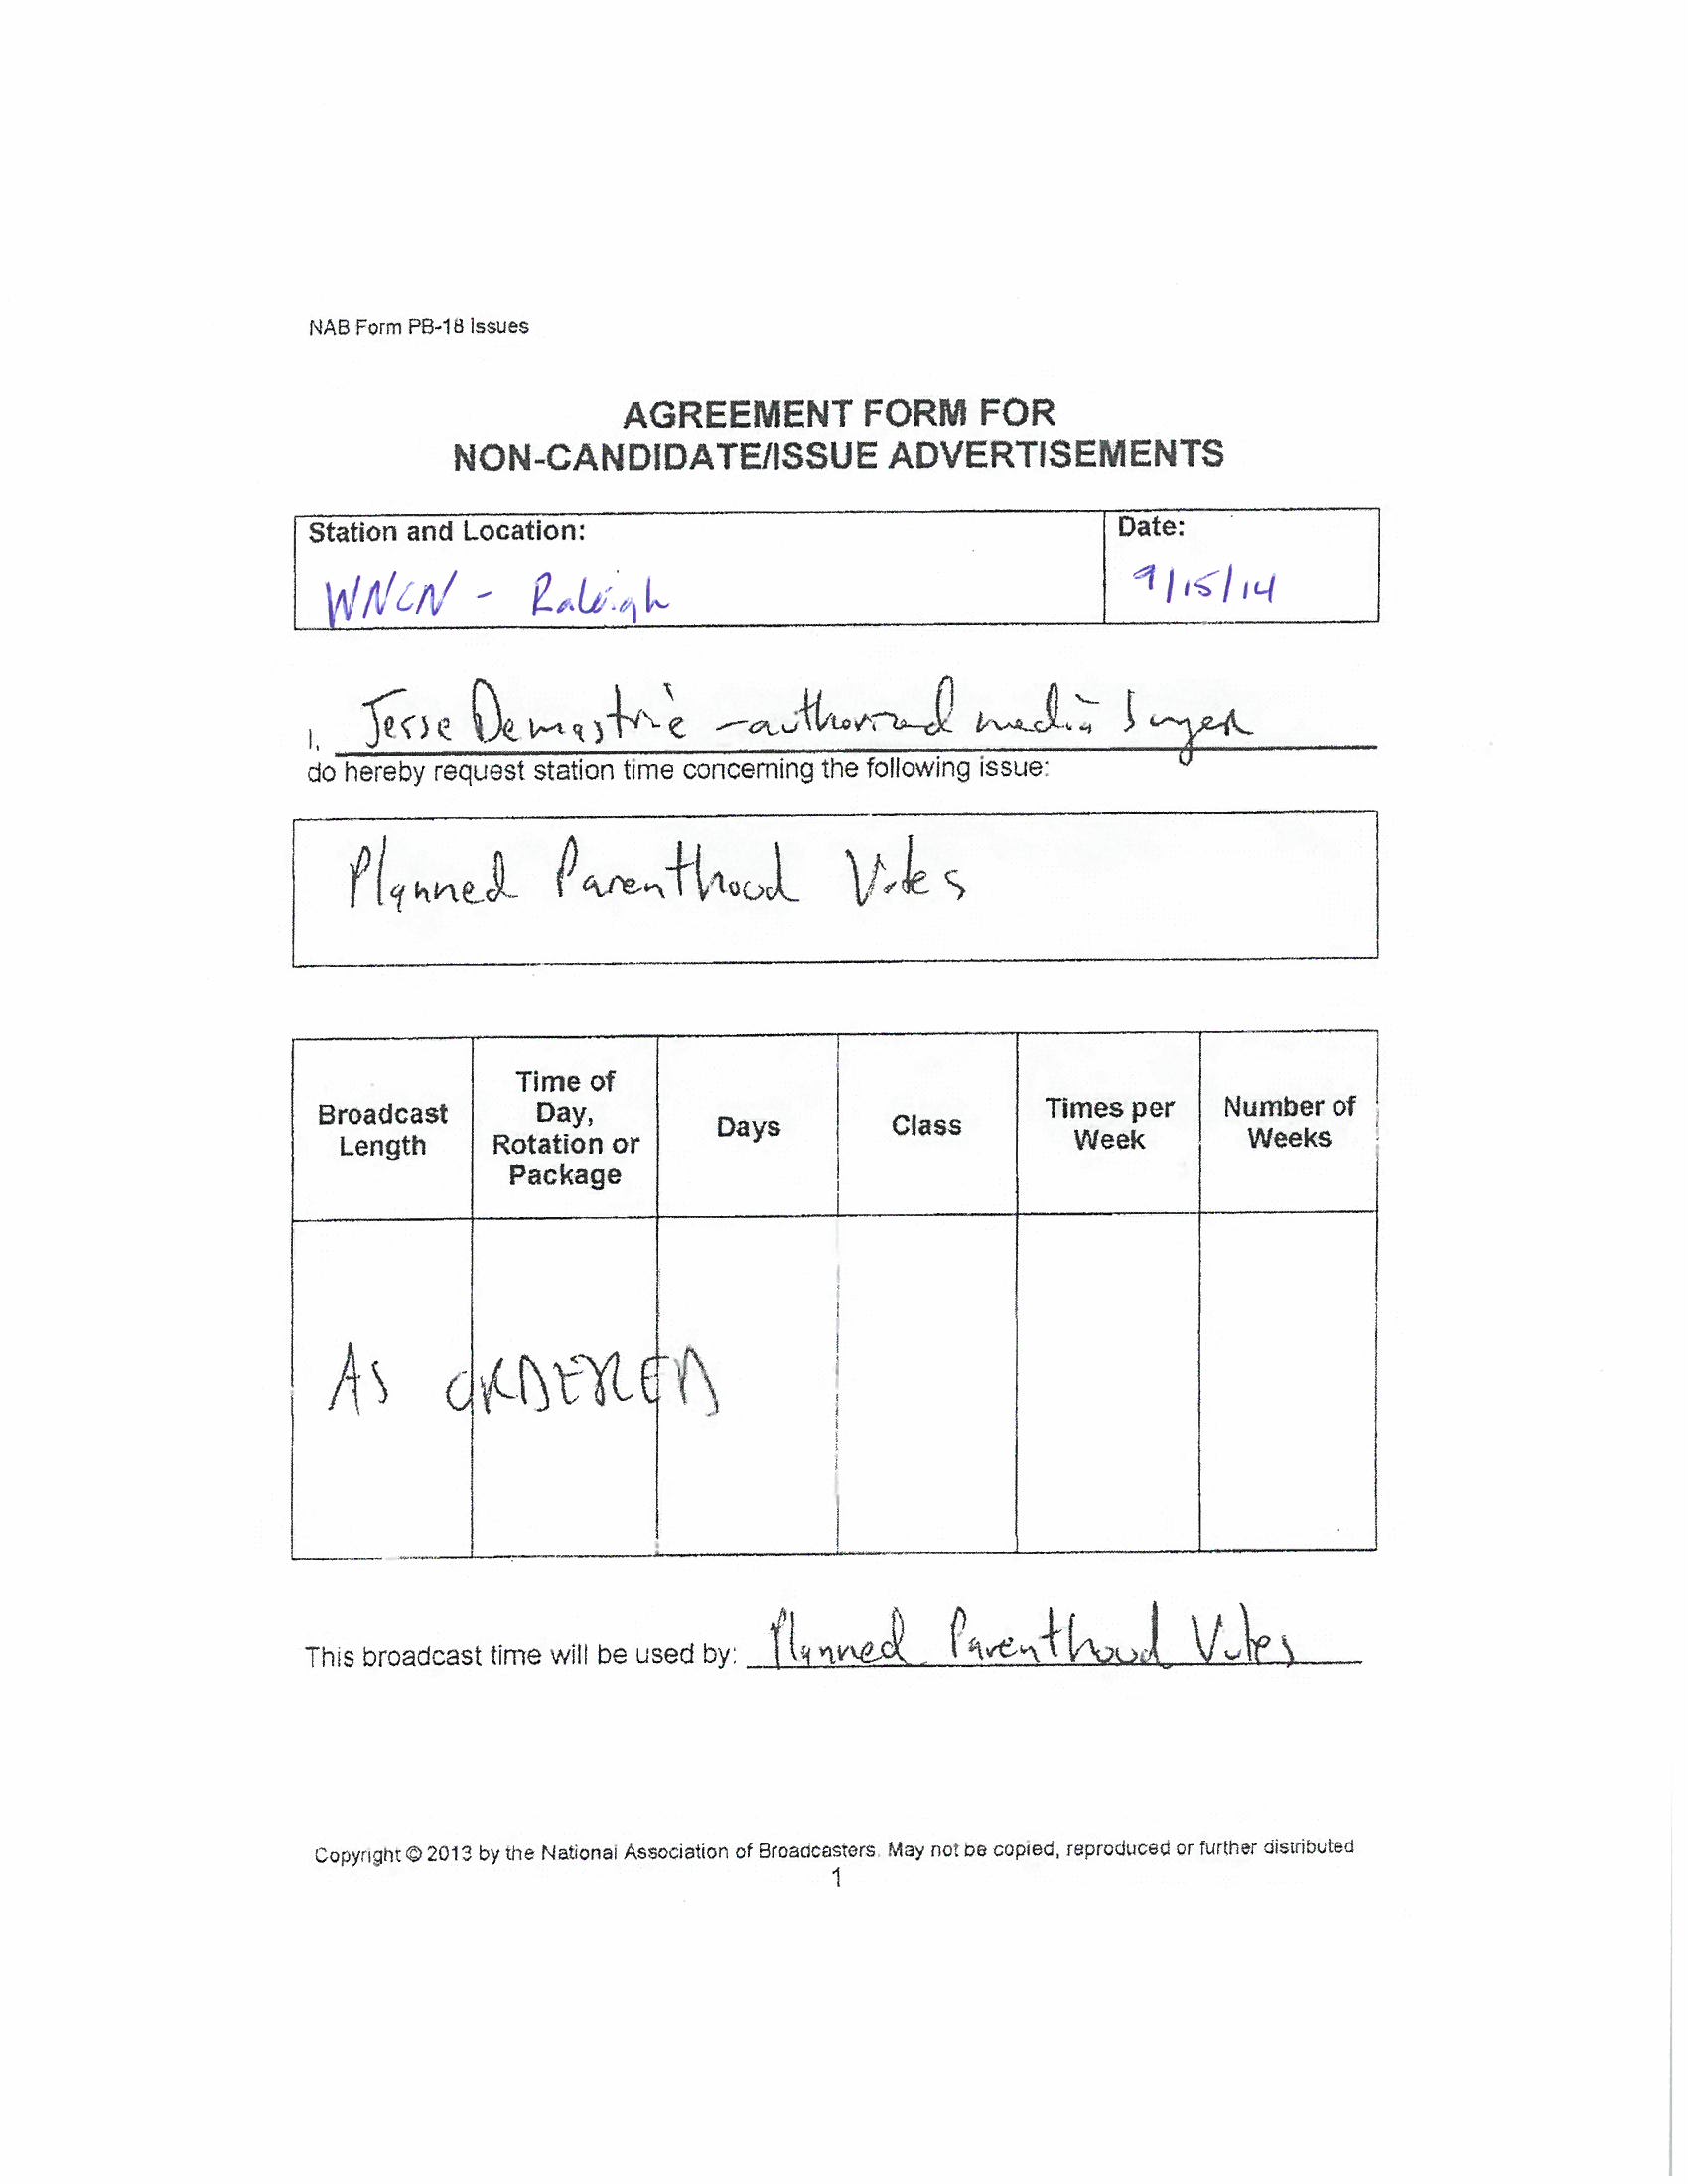 NAB Form PB-18 Issues
AGREEMENT FORM FOR
NON-CANDIDATE/ISSUE ADVERTISEMENTS
Station and Location:
Date:
WNCN - Raleigh
9/15/14
I, Jesse Demastrie - authorized media buyer
do hereby request station time concerning the following issue:
Planned Parenthood Votes
Broadcast Length
Time of Day, Rotation or Package
Days
Class
Times per Week
Number of Weeks
AS ORDERED
This broadcast time will be used by: Planned Parenthood Votes
Copyright © 2013 by the National Association of Broadcasters. May not be copied, reproduced or further distributed
1